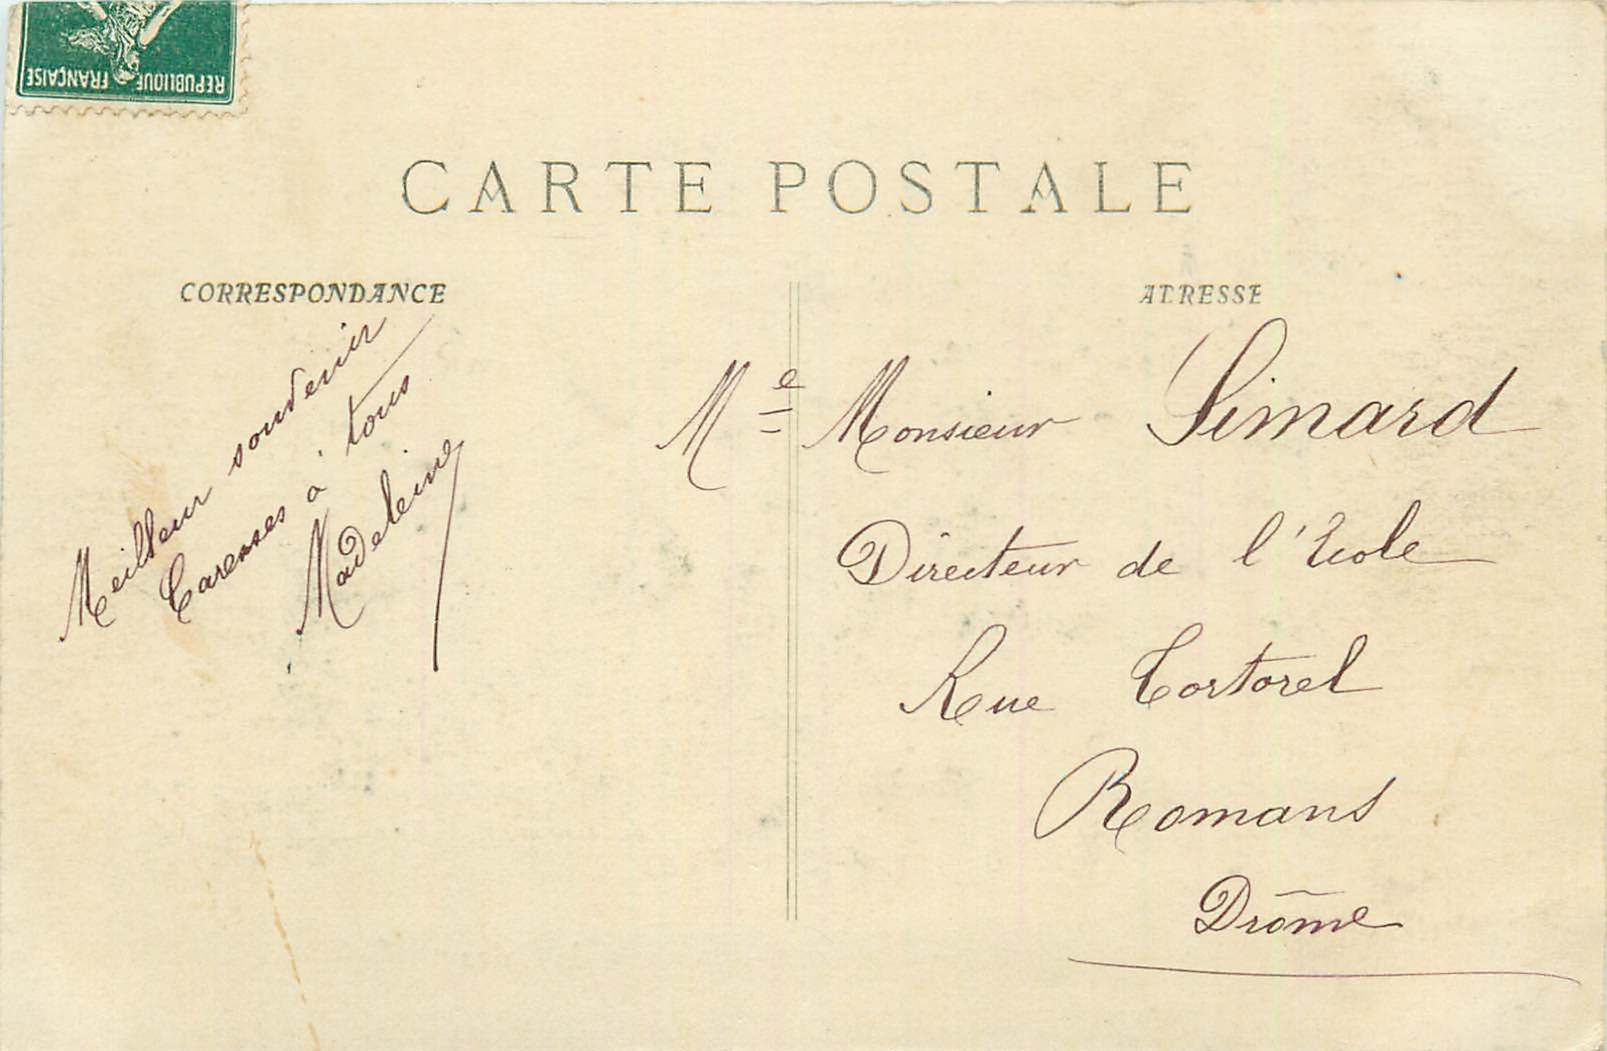 REPUBLIQUE FRANÇAISE
CARTE POSTALE
CORRESPONDANCE
Meilleur souvenir
Caresses à tous
Madeleine
ADRESSE
Me Monsieur Simard
Directeur de l'Ecole
Rue Tortorel
Romans
Drôme